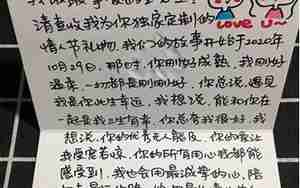 请查收我为你独家定制的
Love u~
情人节礼物，我们的故事开始于2020年
10月29日，那时，你刚好成熟，我刚好
温柔，一切都是刚刚好，你总说，遇见
我是你此生幸运，我想说，能和你在
一起是我三生有幸，你总有我很好，我
想说，你的优秀无人能及，你的宠让
我受宠若惊，你的所有用心我都能
感受到，我也会用最诚挚的心，陪